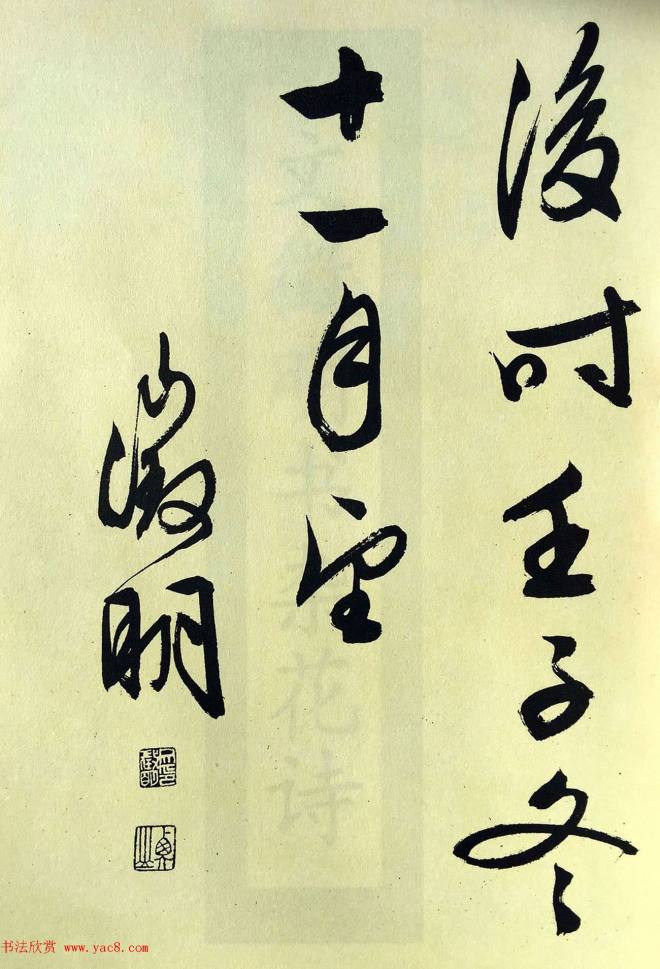 後时壬子冬
十一月望
徵明
书法欣赏 www.yac8.com